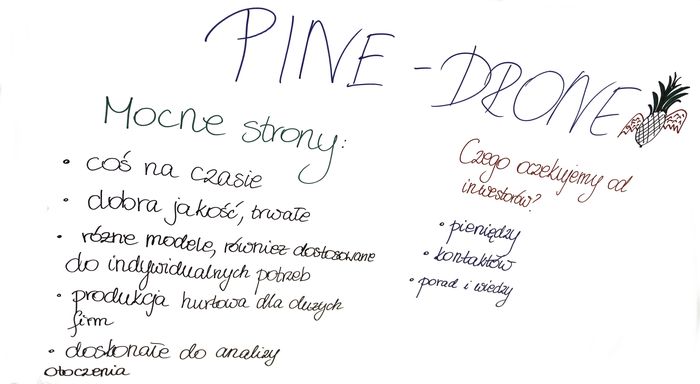 PINE - DRONE
Mocne strony:
• coś na czasie
• dobra jakość, trwałe
• różne modele, również dostosowane
do indywidualnych potrzeb
• produkcja hurtowa dla dużych
firm
• doskonałe do analizy
otoczenia
Czego oczekujemy od
inwestorów?
• pieniędzy
• kontaktów
• porad i wiedzy